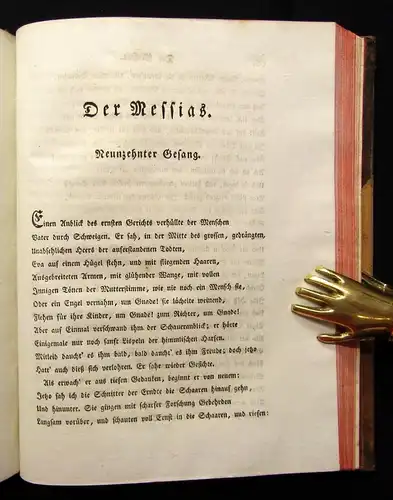 Der Messias.
Neunzehnter Gesang.
Einen Anblick des ernsten Gerichts verhüllte der Menschen
Vater durch Schweigen. Er sah, in der Mitte des grossen, gedrängten,
Unabsehlichen Heers der auferstandenen Todten,
Eva auf einem Hügel stehn, und mit fliegenden Haaren,
Ausgebreiteten Armen, mit glühender Wange, mit vollen
Innigen Tönen der Mutterstimme, wie nie noch ein Mensch sie,
Oder ein Engel vernahm, um Gnade! sie lächelte weinend,
Flehen für ihre Kinder, um Gnade! zum Richter, um Gnade!
Aber auf Einmal verschwand ihm der Schaueranblick; er hörte
Einigemale nur noch sanft Lispeln der himmlischen Harfen.
Mitleid daucht' es ihm bald, bald daucht' es ihm Freude; doch jetzo
Hatt' auch dieß sich verloren. Er sahe wieder Gesichte.
Als erwach' er aus tiefen Gedanken, beginnt er von neuem:
Jetzo sah ich die Schnitter der Erndte die Schaaren hinauf gehn,
Und hinunter. Sie gingen mit scharfer Forschung Gebehrden
Langsam vorüber, und schauten voll Ernst in die Schaaren, und riefen: